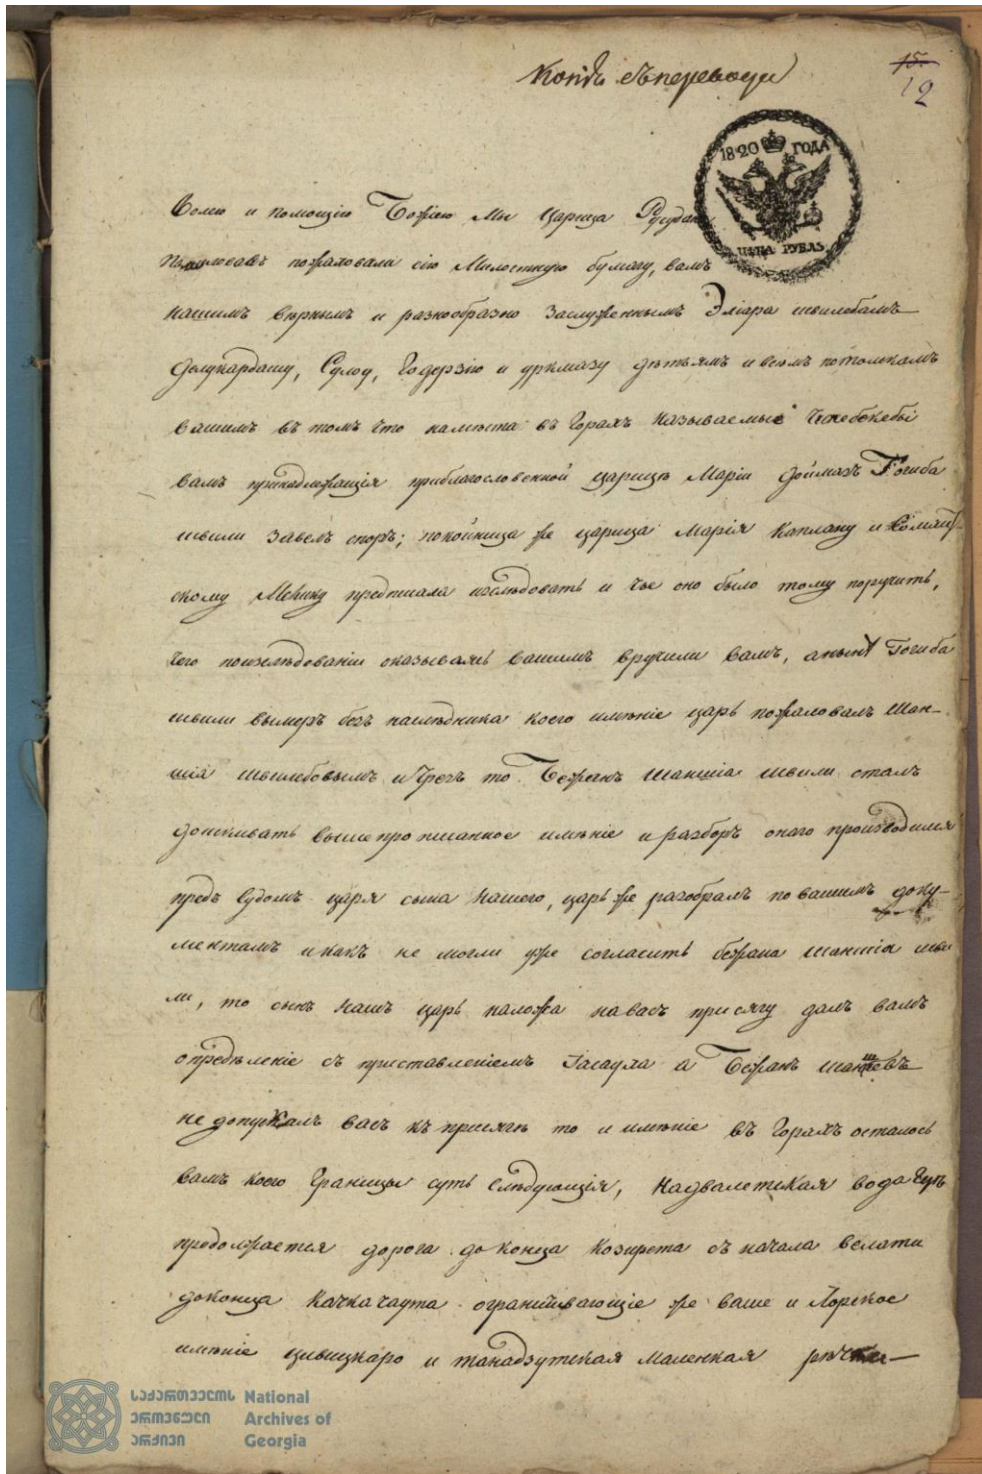 Копія съ перевода
15.
12
1820 ГОДА
ЦѢНА РУБЛЬ
Волею и помощію Божіею Мы Царица Русудань
пожаловали сію Милостную бумагу, вамъ
нашимъ вѣрнымъ и разнообразно заслуженнымъ Эліара швилебамъ
Делукардашу, Сулоу, Годерзію и уркмазу дѣтьямъ и всѣмъ потомкамъ
вашимъ въ томъ что на мѣста въ Горахъ называемые
вамъ принадлежащія приблагословенной царицѣ Маріи Доймазъ Гогиба
швили завелъ споръ; покойница же царица Марія Каплану и
скому Мелику предписала изслѣдовать и чье оно было тому поручить,
чего поизслѣдованіи оказываясь вашимъ вручили вамъ, а нынѣ Гогиба
швили вымеръ безъ наслѣдника коего имѣніе царь пожаловалъ Шан-
шіа швилебовымъ и чрезъ то Бежанъ Шаншіа швили сталъ
доискивать вышепрописанное имѣніе и разборъ онаго производился
предъ судомъ царя сына нашего, царь же разобралъ по вашимъ доку-
ментамъ и какъ не могли уже согласить бежана шаншіа шви
ли, то сынъ нашъ царь наложа на васъ присягу далъ вамъ
опредѣленіе съ приставленіемъ Іасаула а Бежанъ Шаншевъ
не допускалъ васъ къ присягѣ то и имѣніе въ Горахъ осталось
вамъ коего Границы суть слѣдующія, Надвалетская вода гдѣ
продолжается дорога до конца Козифета съ начала велати
доконца Качкачаута ограничивающіе же ваше и Лорское
имѣніе цивицкаро и танадзутская маленкая
საქართველოს National
ეროვნული Archives of
არქივი Georgia